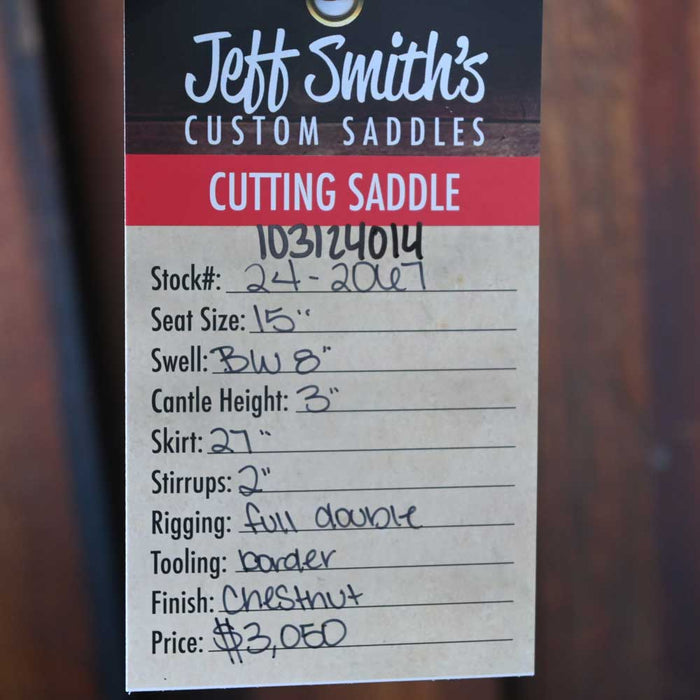 Jeff Smith's
CUSTOM SADDLES
CUTTING SADDLE
103124014
Stock#: 24-2067
Seat Size: 15"
Swell: BW 8"
Cantle Height: 3"
Skirt: 27"
Stirrups: 2"
Rigging: full double
Tooling: border
Finish: Chestnut
Price: $3,050